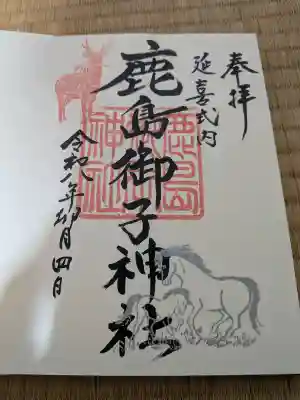 奉拝
延喜式内
鹿島御子神社
令和八年卯月四日